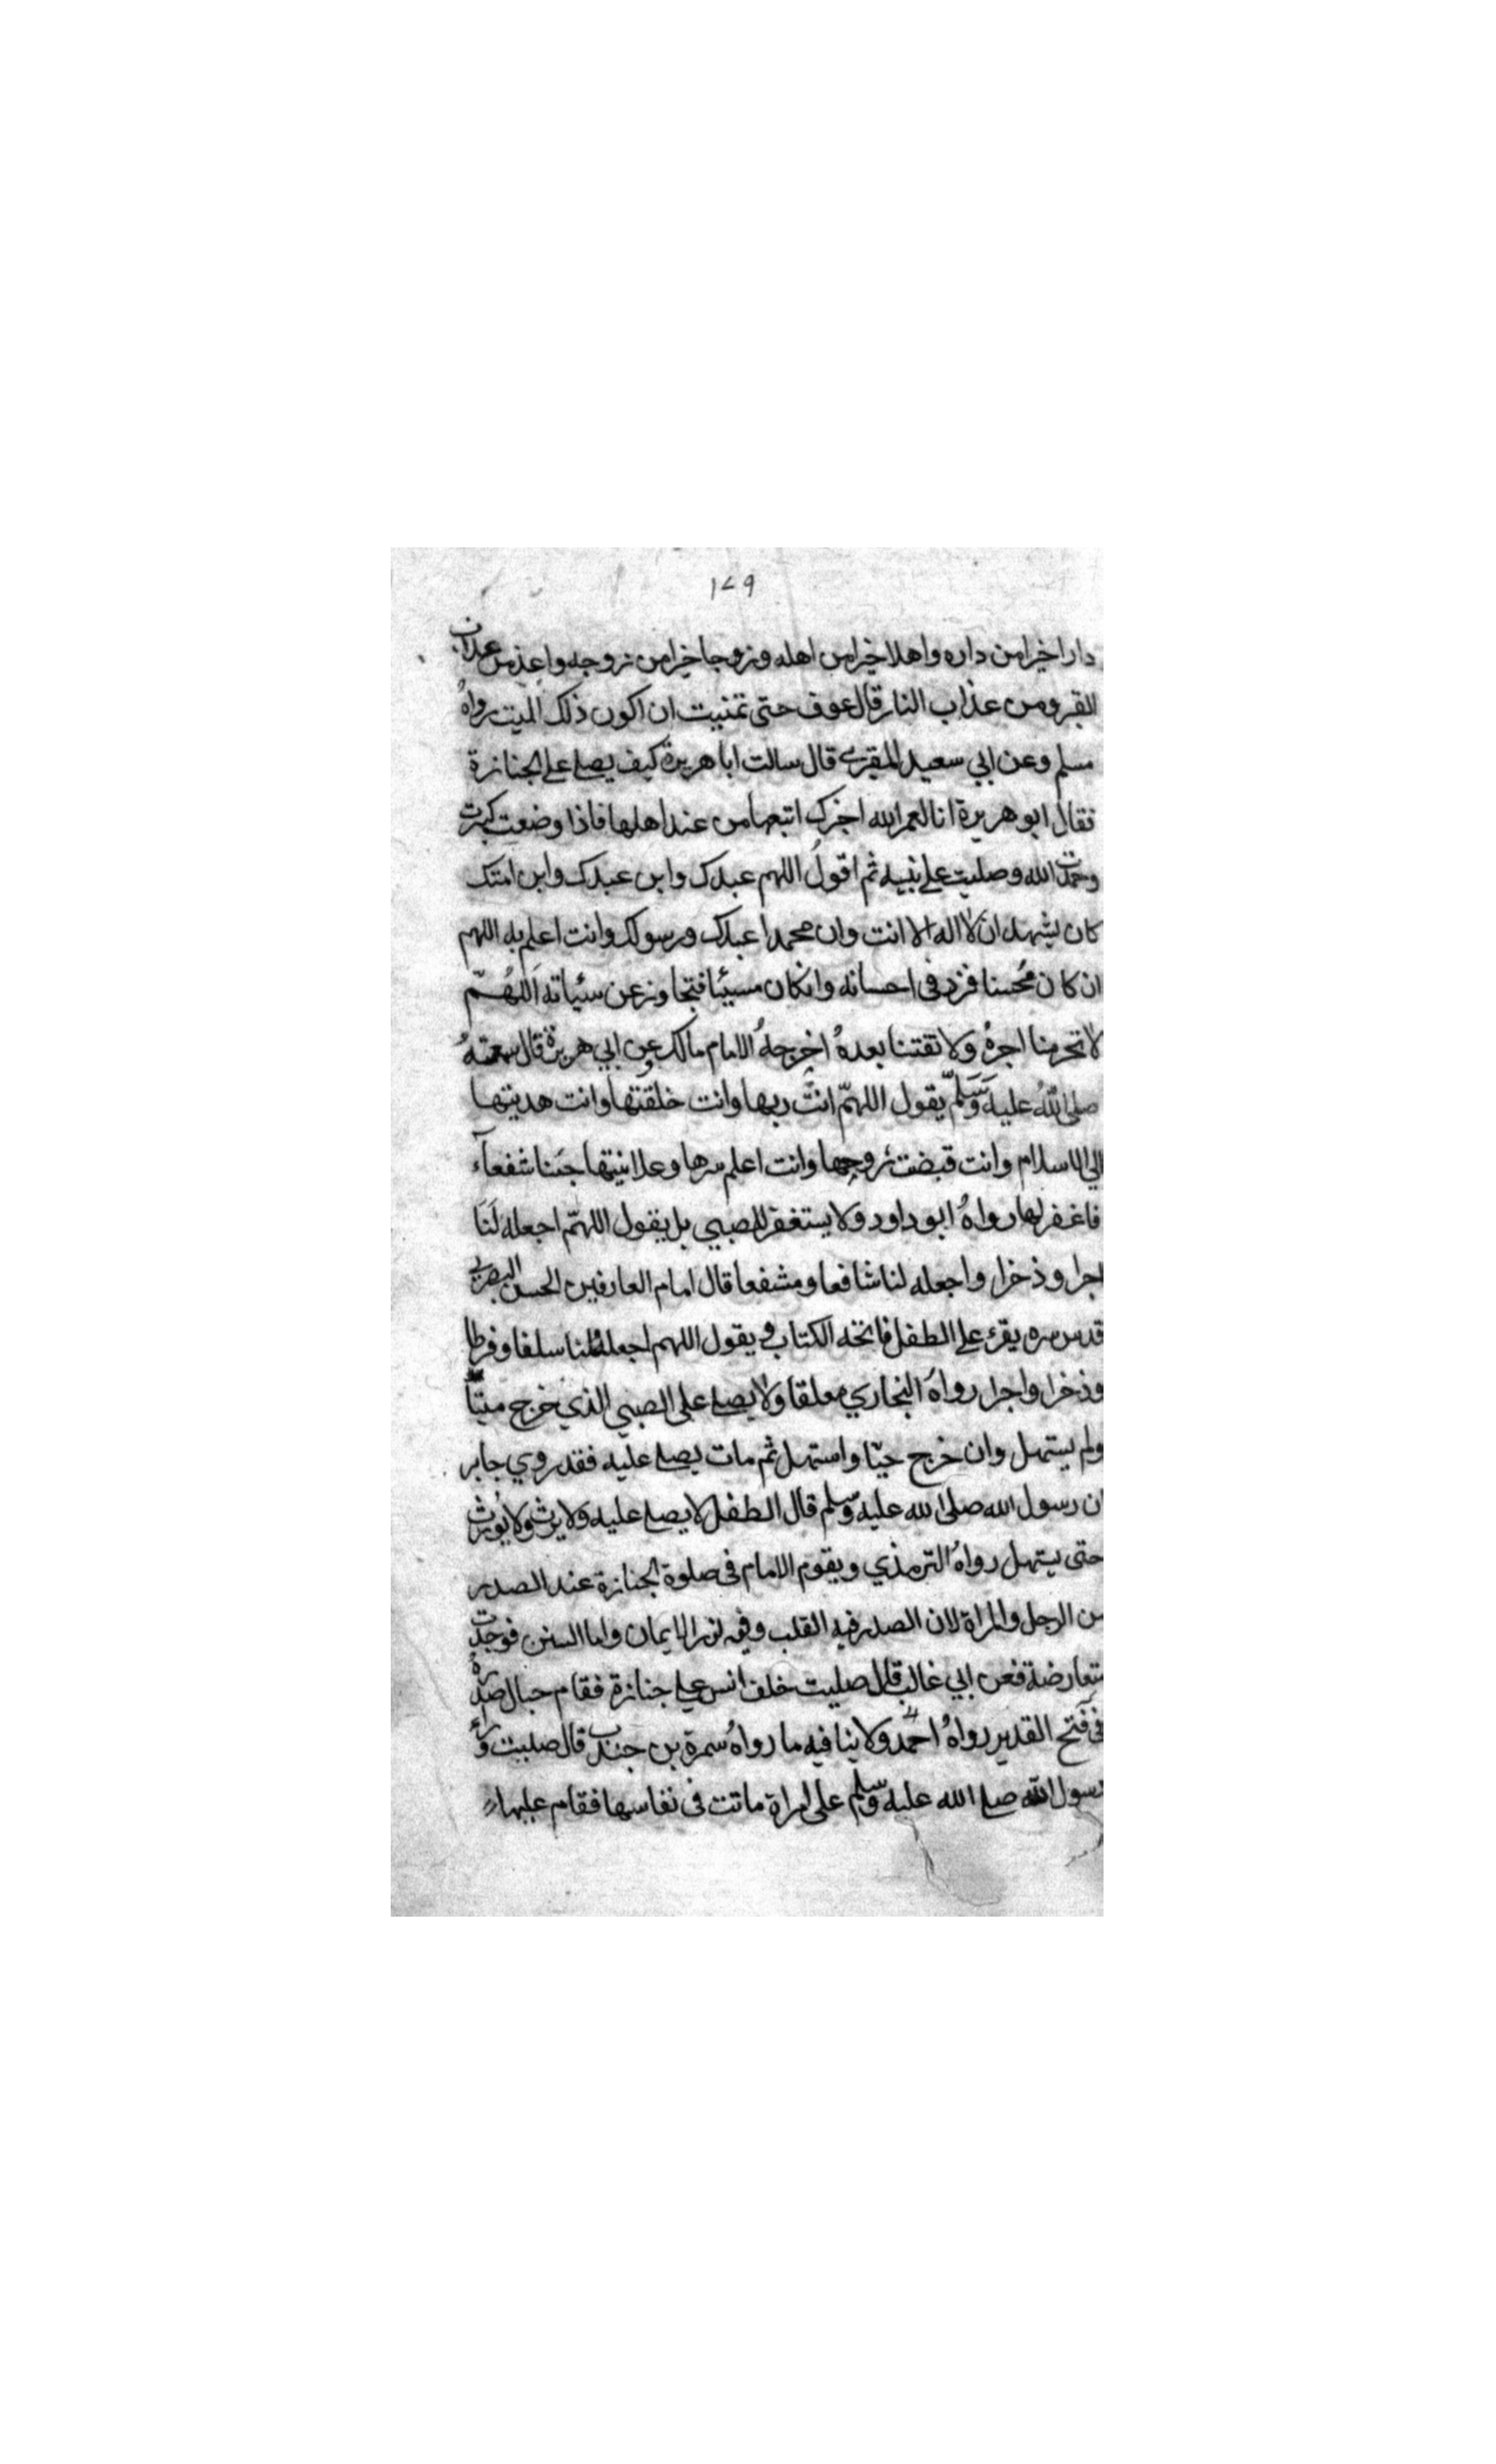 ١٤٩
دارا خيرا من داره واهلا خيرا من اهله وزوجا خيرا من زوجه واعذه من عذاب
القبر ومن عذاب النار قال عوف حتى تمنيت ان اكون ذلك الميت رواهُ
مسلم وعن ابي سعيد المقبري قال سالت ابا هريرة كيف يصلي على الجنازة
فقال ابو هريرة انا لعمر الله اخبرك اتبعها من عند اهلها فاذا وضعت كبرت
وحمدت الله وصليت على نبيه ثم اقول اللهم عبدك وابن عبدك وابن امتك
كان يشهد ان لا اله الا انت وان محمدا عبدك ورسولك وانت اعلم به اللهم
ان كان مُحسنا فزد في احسانه وان كان مسيئا فتجاوز عن سيئاته اَللهُمّ
لا تحرمنا اجرهُ ولا تفتنا بعدهُ اخرجهُ الامام مالك وعن ابي هريرة قال سمعتهُ
صلى الله عليه وسلم يقول اللهمّ انت ربها وانت خلقتها وانت هديتها
الي الاسلام وانت قبضت روحها وانت اعلم سرها وعلانيتها جئنا شفعآء
فاغفر لها رواهُ ابو داود ولا يستغفر للصبي بل يقول اللهمّ اجعله لَنَا
اجرا وذخرا واجعله لنا شافعا ومشفعا قال امام العارفين الحسن البصري
قدس سره يقرء على الطفل فاتحة الكتاب ويقول اللهم اجعلهُ لنا سلفا وفرطا
وذخرا واجرا رواهُ البخاري معلقا ولا يصلي على الصبي الذي خرج ميتّا
ولم يستهل وان خرج حيّا واستهل ثم مات يصلي عليه فقد روي جابر
ان رسول الله صلى الله عليه وسلم قال الطفل لا يصلي عليه ولا يرث ولا يُورث
حتى يستهل رواهُ الترمذي ويقوم الامام في صلوة الجنازة عند الصدر
من الرجل والمراة لان الصدر فيه القلب وفيه نور الايمان واما السنن فوجدت
متعارضة فعن ابي غالب قال صليت خلف انس على جنازة فقام حيال صدرهُ
في فتح القدير رواهُ احمد ولا ينافيه ما رواهُ سمرة بن جندب قال صليت وراء
رسول الله صلى الله عليه وسلم على امراة ماتت في نفاسها فقام عليها